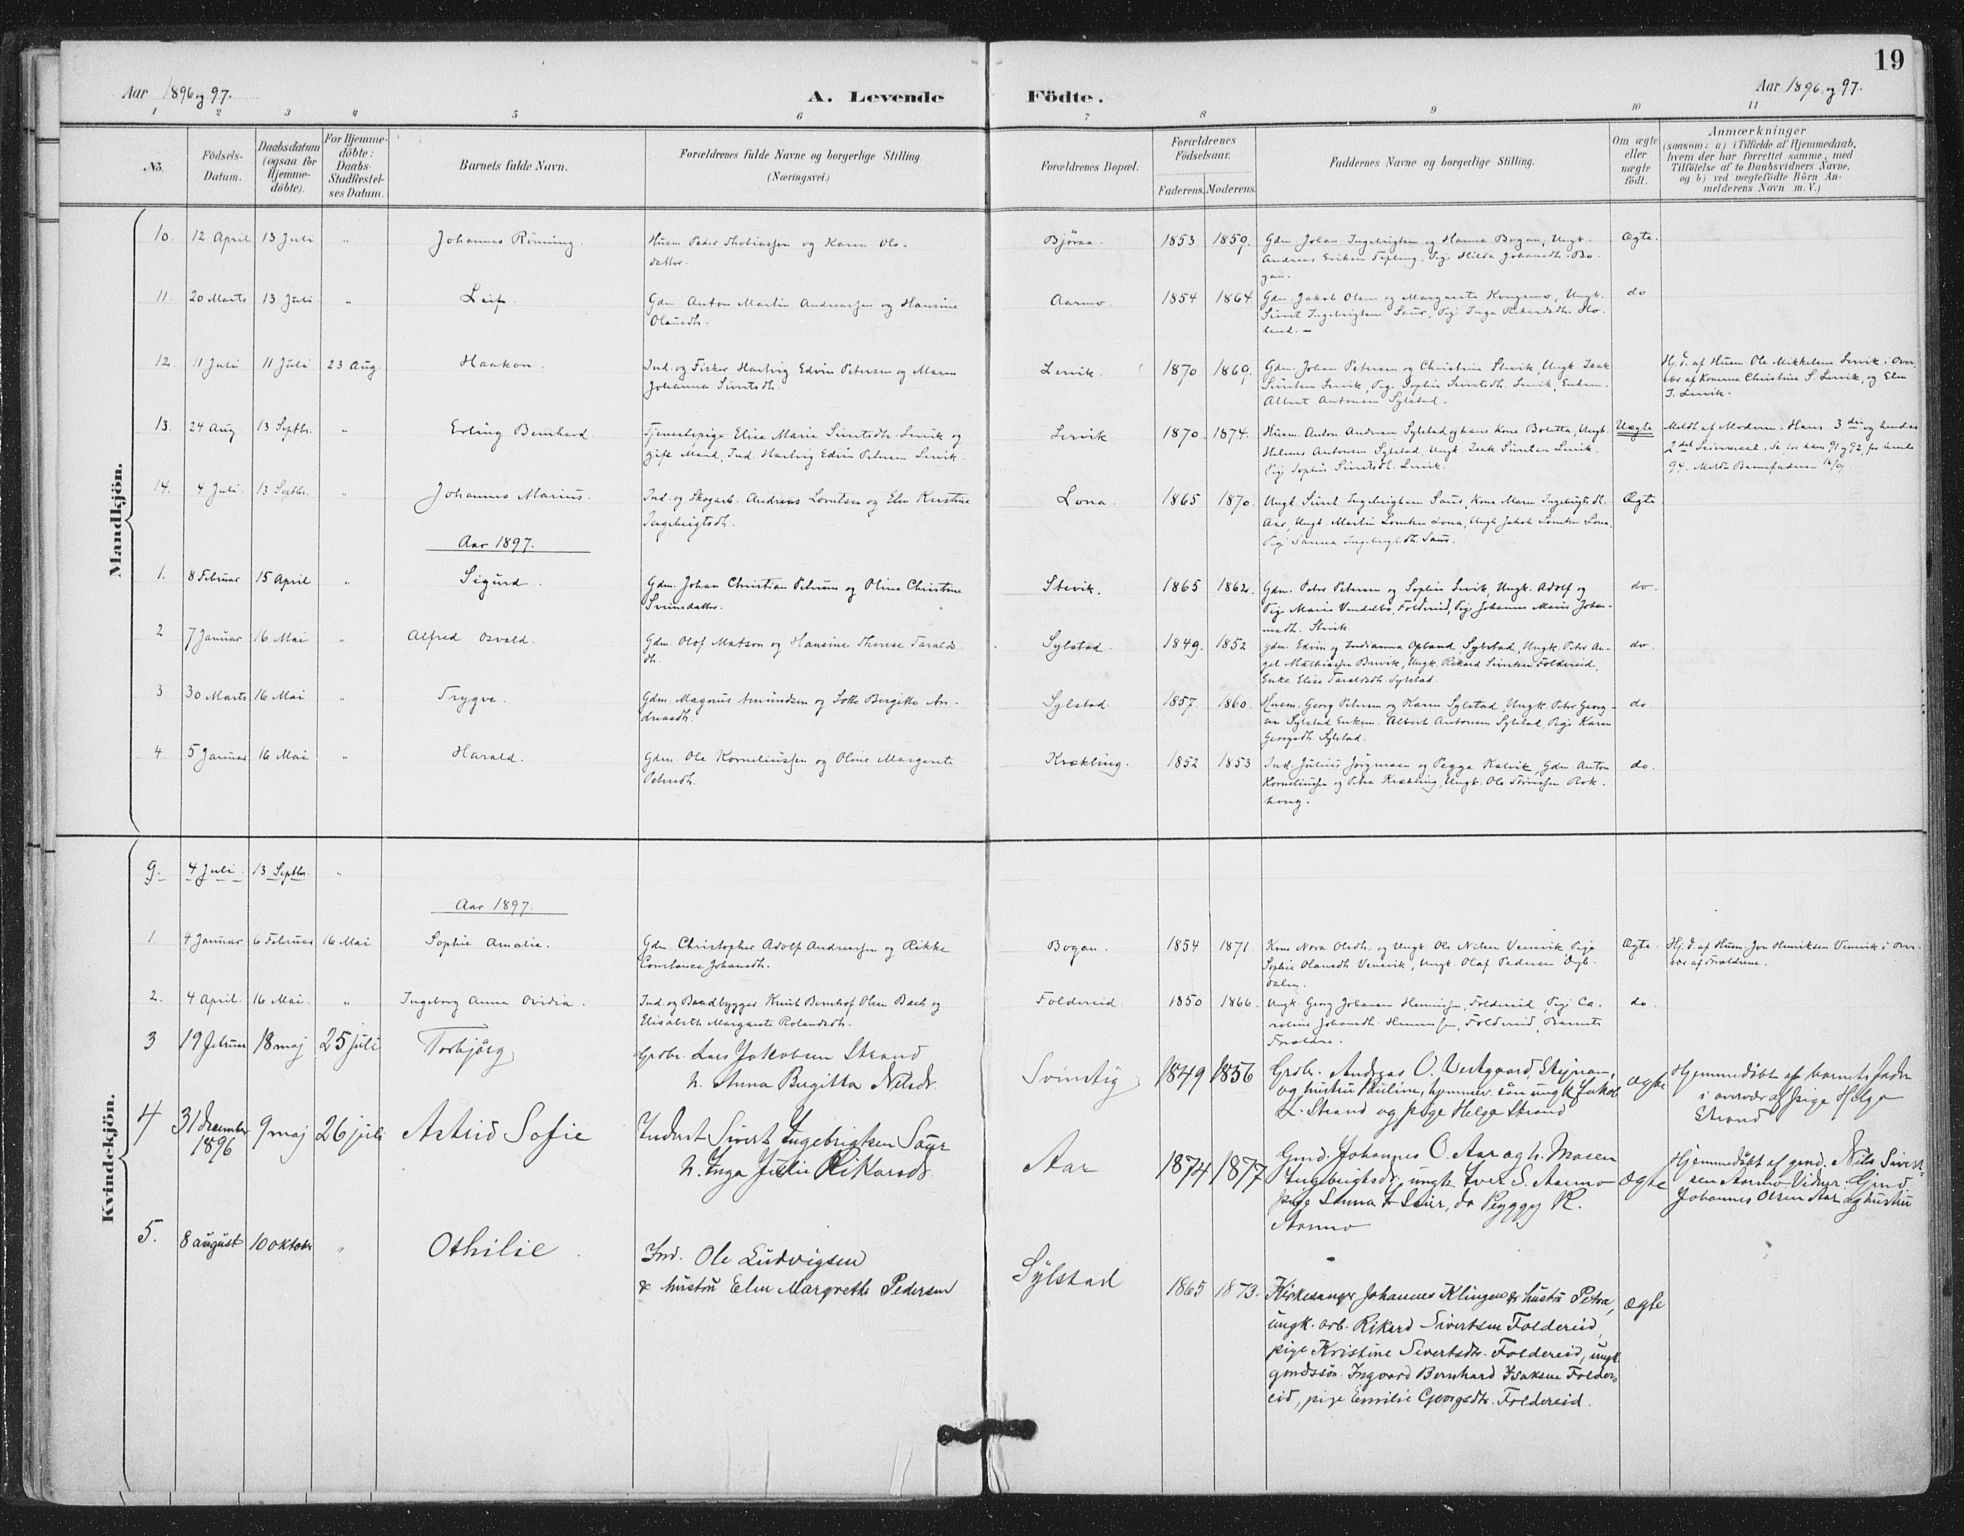 19
Aar 1896 og 97.
A. Levende Födte.
Aar 1896 og 97.
1 2 3 4 5 6 7 8 9 10 11
No.
Födsels-
Datum.
Daabsdatum
(ogsaa for
Hjemme-
döbte).
For Hjemme-
döbte:
Daabs-
Stadfæstel-
ses Datum.
Barnets fulde Navn.
Forældrenes fulde Navne og borgerlige Stilling.
(Næringsvei.)
Forældrenes Bopæl.
Forældrenes
Födselsaar.
Faderens. Moderens.
Faddernes Navne og borgerlige Stilling.
Om ægte
eller
uægte
födt.
Anmærkninger
(saasom: a) i Tilfælde af Hjemmedaab,
hvem der har forrettet samme, med
Tilföielse af to Daabsvidners Navne,
og b) ved uægtefödte Börn An-
melderens Navn m. V.)
Mandkjön.
10. 12 April 13 Juli " Johannes Rönning
Husm. Peder Thobiassen og Karen Ols-
datter.
Björaa. 1853 1859.
Gdm. Johan Ingebrigtsen og Hanna Bogan, Ungk.
Andreas Eriksen Pige Hilda Johansdt. Bo-
gan.
Ægte.
11. 20 Marts 13 Juli " Leif.
Gdm. Anton Martin Andreassen og Hansine
Olausdt.
Aarmo. 1854 1864
Gdm. Jakob Olsen og Margareta Kongsmo, Ungk.
Sivert Ingebrigtsen Saur, Pige Inga Rikardsdt. Ho-
land. —
do
12. 11 Juli 11 Juli 23 Aug. Haakon.
Ind. og Fisker Hartvig Edvin Petersen og Maren
Johanna Sivertsdt.
Lervik. 1870 1869.
Gdm. Johan Petersen og Christine Stevik, Ungk. Isak
Sivertsen Lervik, Pige Sophie Sivertsdt. Lervik, Enkem.
Albert Antonsen Sylstad.
Hj. d. af Husm. Ole Mikkelsen Lervik i Over-
vær af Konerne Christine S. Lervik, og Elen
J. Lervik.
13. 24 Aug 13 Septbr. " Erling Bernhard
Tjenestepige Elise Marie Sivertsdt. Lervik og
gift Mand, Ind. Hartvig Edvin Petersen Lervik.
Lervik 1870 1874.
Husm. Anton Andreas Sylstad og hans Kone Boletta, Ungk.
Antonsen Sylstad, Ungk. Isak Sivertsen Lervik,
Pige Sophie Sivertsdt. Lervik.
Uægte
Meldt af Moderen. Hans 3die og hendes
2det Leiermaal. Se for ham 91 og 92, for hende
94. Meldt Barnefaderen
14. 4 Juli 13 Septbr. " Johannes Marius.
Ind. og Skogarb. Andreas Lorntsen og Elen Kirstine
Ingebrigtsdt.
Lona. 1865 1870.
Ungk. Sivert Ingebrigtsen Saur, Kone Maren Ingebrigtsdt.
Aar, Ungk. Martin Lorntsen Lona, Ungk. Jakob Lorntsen Lona,
Pige Sanna Ingebrigtsdt. Saur.
Ægte
Aar 1897.
1. 8 Februar 15 April " Sigurd.
Gdm. Johan Christian Petersen og Oline Christine
Svensdatter.
Stevik. 1865 1862.
Gdm. Peter Petersen og Sophie Lervik, Ungk. Adolf og
Pige Marie Vendelbo, Foldereid, Pige Johanna Marie Johan-
nesdt. Stevik.
do.
2 7 Januar 16 Mai " Alfred Osvald.
Gdm. Olof Matson og Hansine Therese Taralds-
dt.
Sylstad. 1849. 1852
Gdm. Edvin og Indianna Opland, Sylstad, Ungk. Peter An-
gel Mathiassen Brevik, Ungk. Rikard Sivertsen Foldereid,
Enke Elise Taraldsdt. Sylstad.
do.
3. 30 Marts 16 Mai " Trygve.
Gdm. Magnus Amundsen og Lotte Bergitte An-
dreasdt.
Sylstad. 1857. 1860.
Husm. Georg Petersen og Karen Sylstad, Ungk. Peter Georg-
sen Sylstad, Enkem. Albert Antonsen Sylstad, Pige Karen
Georgsdt. Sylstad.
do.
4. 5 Januar 16 Mai " Harald.
Gdm. Ole Korneliussen og Oline Margrete
Petersdt.
Krækling. 1852 1853
Ind. Julius Jörgensen og Pegga Kalvik, Gdm. Anton
Korneliussen og Petra Krækling, Ungk. Ole
do.
Kvindekjön.
9. 4 Juli. 13 Septbr. "
Aar 1897.
1. 4 Januar 6 Februar 16 Mai Sophie Amalie.
Gdm. Christopher Adolf Andreassen og Rikke
Constance Johansdt.
Bogan. 1854 1871.
Kone Nora Olsdt. og Ungk. Ole Nilsen Vennevik, Pige
Sophie Olausdt. Vennevik, Ungk. Olaf Pedersen
dalen.
Ægte.
Hj. d. af Husm. Jon Henriksen Vennevik i Over-
vær af Forældrene.
2. 4 April. 16 Mai. " Ingeborg Anna Ovidia.
Ind. og Baadbygger Knut Bernhof Olsen Bach og
Elisabeth Margrete Rolandsdt.
Foldereid. 1850 1866.
Ungk. Georg Johansen Henningsen, Foldereid, Pige Ca-
roline Johansdt. Henningsen, Foldereid, Barnets
Forældre.
do
3 19 Februar 18 maj 25 juli Torbjørg
Grbr. Lars Jakobsen Strand
h. Anna Birgitta Nilsdr.
Svinstig 1849 1856
Grbr. Andreas O. Vestgaard,
og hustru Pauline, hjemmev. søn ungk. Jakob
L. Strand og pige Helga Strand
ægte
Hjemmedøbt af barnets fader
i overvær af pige Helga
Strand
4 31 december
1896 9 maj 26 juli Astrid Sofie
Inderst Sivert Ingebrigtsen Saur
h. Inga Julie Rikardsdr.
Aar 1874 1877
Gmd. Johannes O. Aar og h. Maren
Ingebrigtsdr., ungk. Iver S. Aarmo
pige Sanna I. Saur, do Peggy R.
Aarmo
ægte
Hjemmedøbt af gmd. Nils Sivert-
sen Aarmo Vidner: Gmd.
Johannes Olsen Aar og hustru
5. 8 august 10 oktober " Othilie.
Ind. Ole Ludvigsen
& hustru Elen Margrethe Pedersen
Sylstad 1865 1873.
Kirkesanger Johannes Klingen & hustru Petra,
ungk. arb. Rikard Sivertsen Foldereid,
pige Kristine Sivertsdtr. Foldereid, ungk.
gmdssøn Ingvard Bernhard Isaksen Folder-
eid, pige Emilie Georgsdtr. Foldereid.
ægte